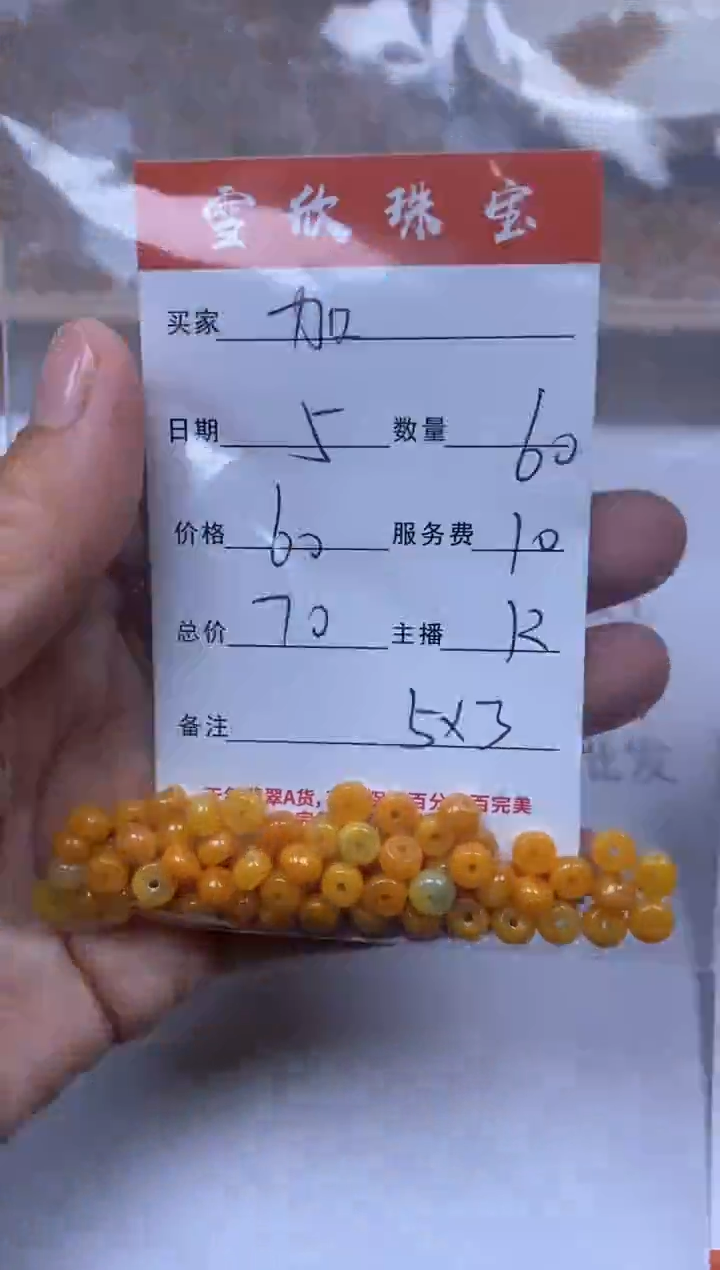 雪欣珠宝
买家 加
日期 5 数量 60
价格 60 服务费 10
总价 70 主播 K
备注 5x3
翠A货, 百分 百完美
批发